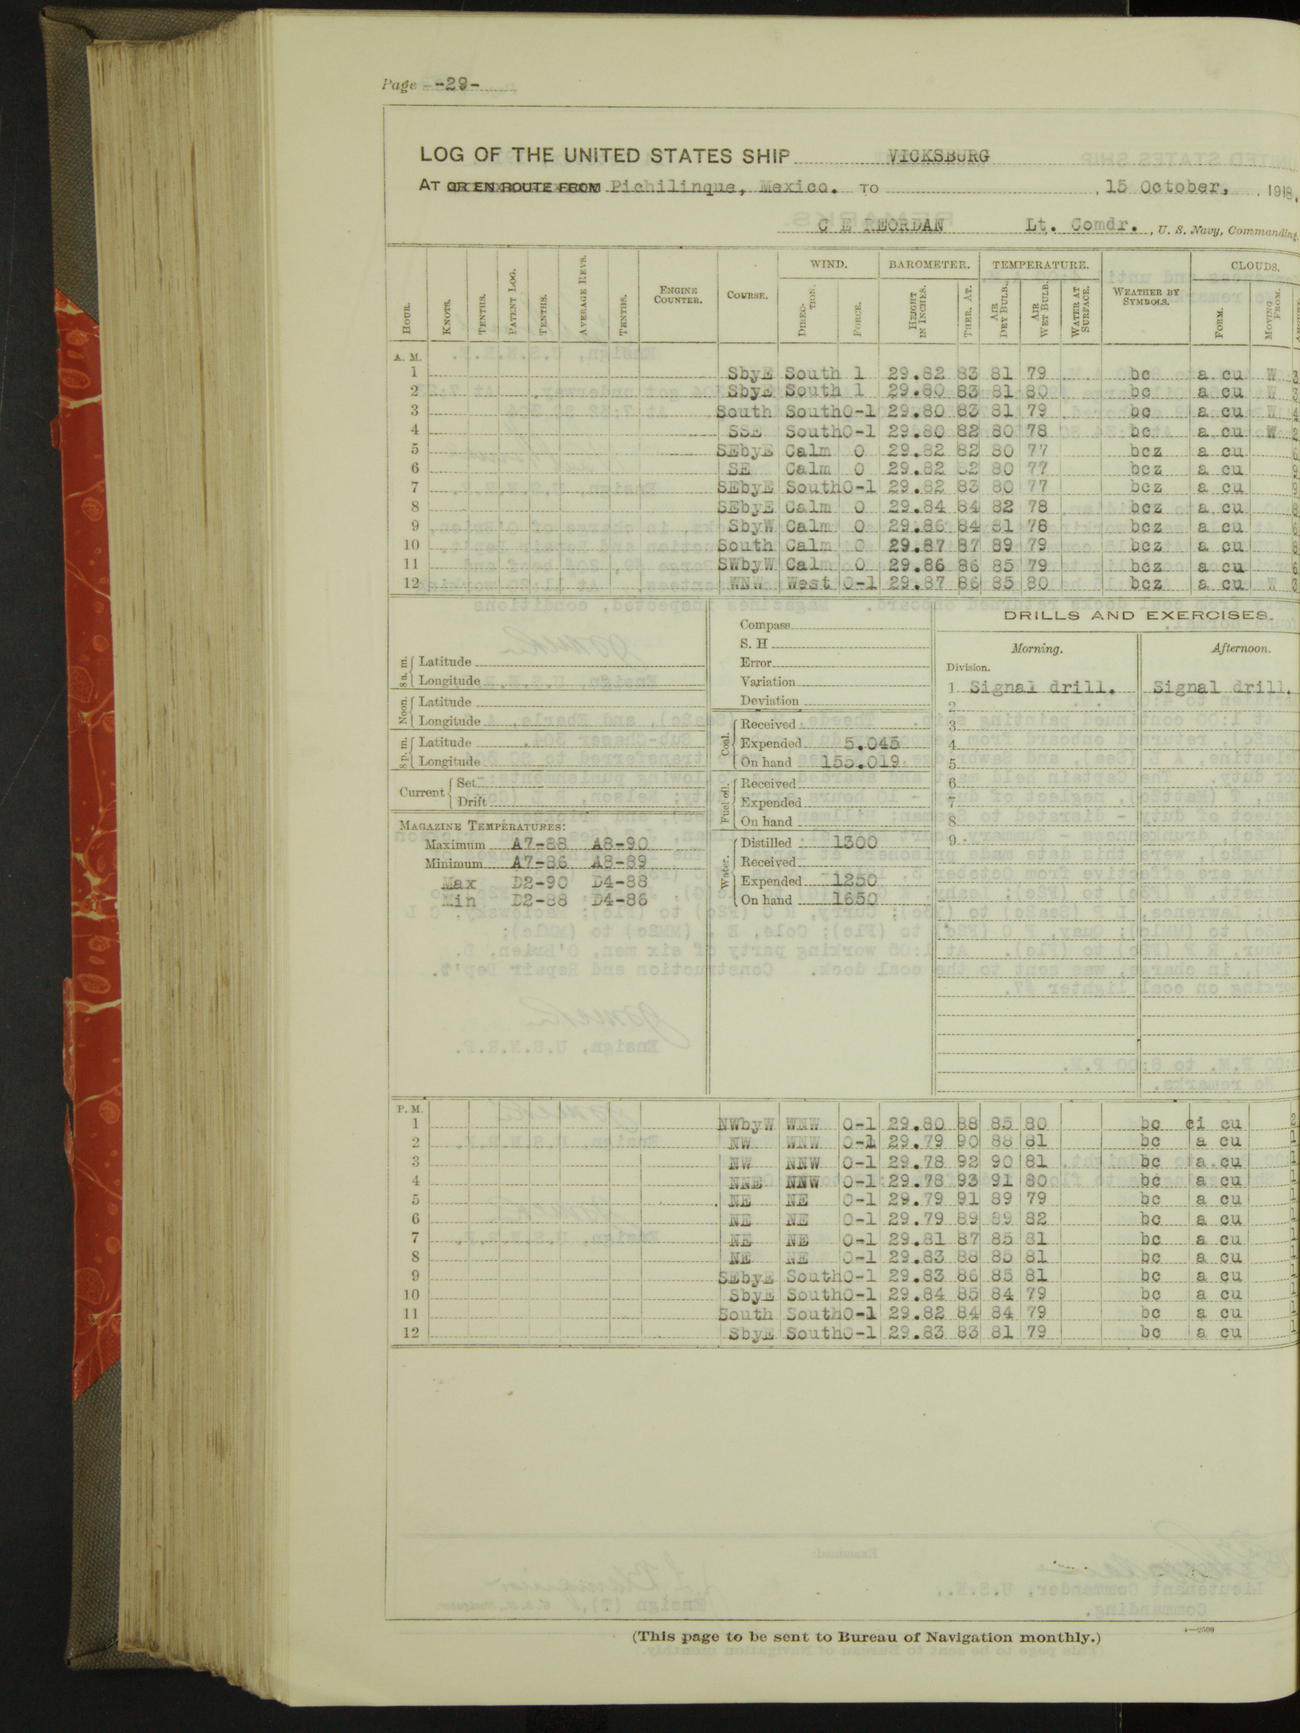 Page --29-
LOG OF THE UNITED STATES SHIP VICKSBURG
AT OR EN ROUTE FROM Pichilinque, Mexico. TO , 15 October, , 1918,
C E REORDAN Lt. Comdr. , U. S. Navy, Commanding.
WIND. BAROMETER. TEMPERATURE. CLOUDS.
HOUR. KNOTS. TENTHS. PATENT LOG. TENTHS. AVERAGE REVS. TENTHS. ENGINE COUNTER. COURSE. DIRECTION. FORCE. HEIGHT IN INCHES. THER. AT. AIR DRY BULB. AIR WET BULB. WATER AT SURFACE. WEATHER BY SYMBOLS. FORM. MOVING FROM.
A. M.
1 SbyE South 1 29.82 83 81 79 bc a cu W 3
2 SbyE South 1 29.80 83 81 80 bc a cu W 3
3 South South 0-1 29.80 83 81 79 bc a cu W 4
4 SSE South 0-1 29.80 82 80 78 bc a cu W 2
5 SEbyE Calm 0 29.82 82 80 77 bcz a cu
6 SE Calm 0 29.82 82 80 77 bcz a cu
7 SEbyE South 0-1 29.82 83 80 77 bcz a cu
8 SEbyE Calm 0 29.84 84 82 78 bcz a cu
9 SbyW Calm 0 29.86 84 81 78 bcz a cu
10 South Calm 0 29.87 87 89 79 bcz a cu
11 SWbyW Calm 0 29.86 86 85 79 bcz a cu
12 WNW West 0-1 29.87 86 85 80 bcz a cu
8 a. m. Latitude
Longitude
Noon. Latitude
Longitude
8 p. m. Latitude
Longitude
Current Set
Drift
MAGAZINE TEMPERATURES:
Maximum A7-88 A8-90
Minimum A7-86 A8-89
Max D2-90 D4-88
Min D2-88 D4-86
Compass
S. H
Error
Variation
Deviation
Coal. Received
Expended 5.045
On hand 155.019
Fuel oil. Received
Expended
On hand
Water. Distilled 1300
Received
Expended 1250
On hand 1650
DRILLS AND EXERCISES.
Morning. Afternoon.
Division.
1 Signal drill. Signal drill.
2
3
4
5
6
7
8
9
P. M.
1 NWbyW WNW 0-1 29.80 88 85 80 bc ci cu 2
2 NW WNW 0-1 29.79 90 88 81 bc a cu 1
3 NW NNW 0-1 29.78 92 90 81 bc a cu 1
4 NNE NNW 0-1 29.78 93 91 80 bc a cu 1
5 NE NE 0-1 29.79 91 89 79 bc a cu 1
6 NE NE 0-1 29.79 89 89 82 bc a cu 1
7 NE NE 0-1 29.81 87 85 81 bc a cu 1
8 NE NE 0-1 29.83 88 85 81 bc a cu 1
9 SEbyE South 0-1 29.83 86 85 81 bc a cu 1
10 SbyE South 0-1 29.84 85 84 79 bc a cu 1
11 South South 0-1 29.82 84 84 79 bc a cu 1
12 SbyE South 0-1 29.83 83 81 79 bc a cu 1
(This page to be sent to Bureau of Navigation monthly.)